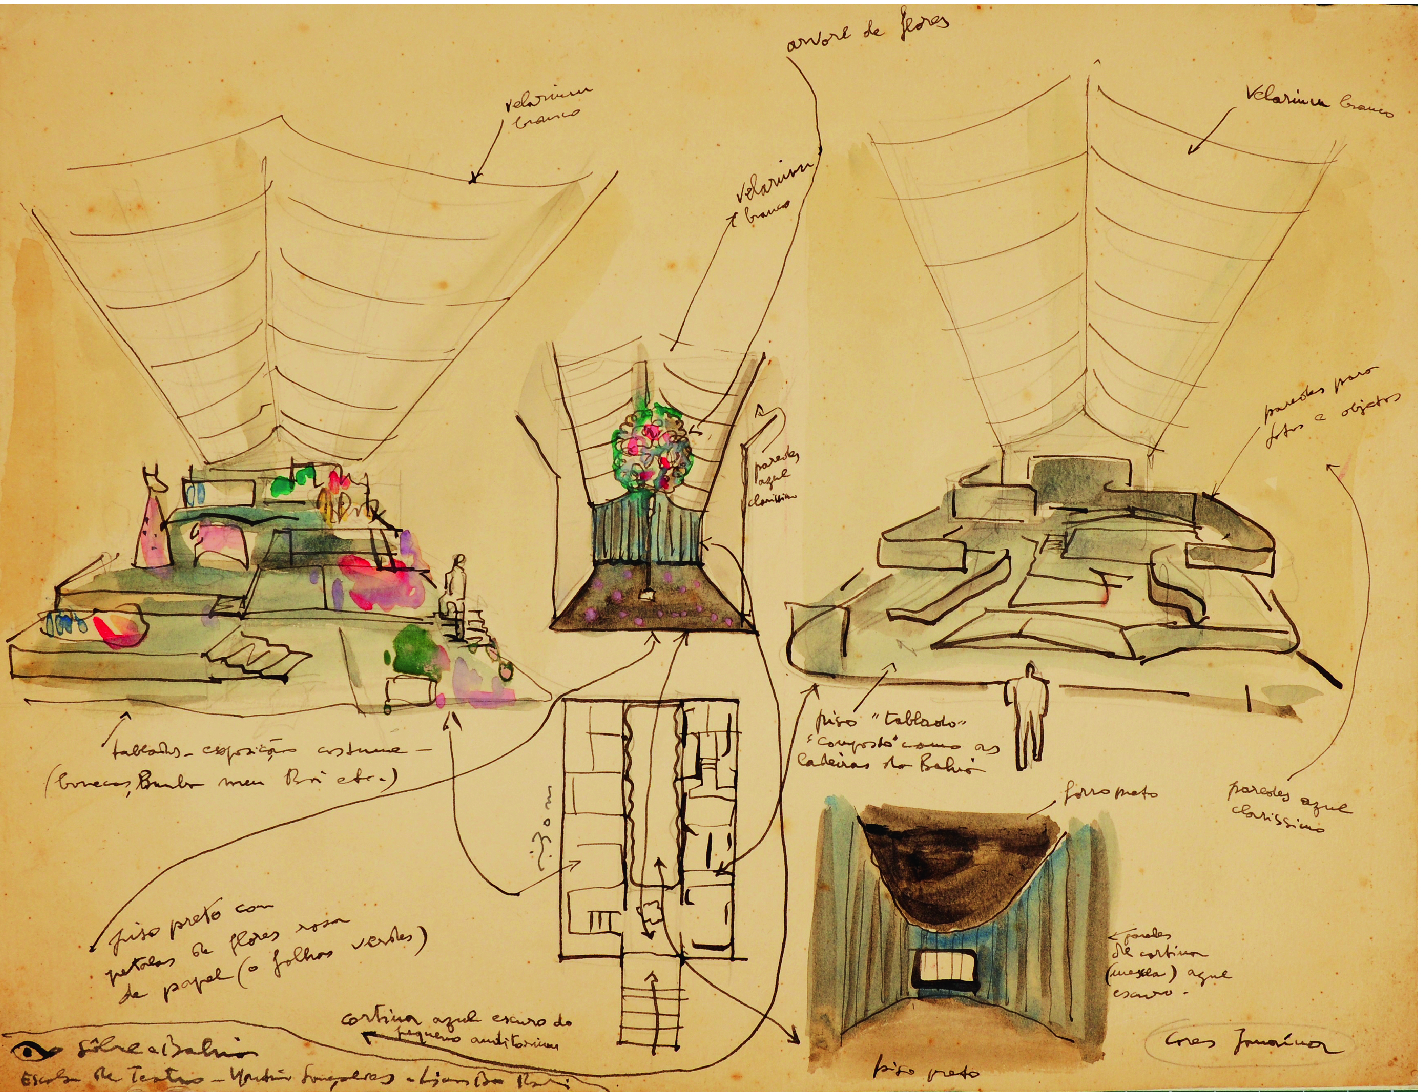 arvore de flores
velarium
branco
velarium branco
velarium
branco
paredes para
fotos e objetos
paredes
azul
clarissimo
tablado - exposição costume -
(bonecas, Bumba meu Boi etc.)
piso "tablado"
"composto" como as
ladeiras da Bahia
forro preto
paredes azul
clarissimo
30 m
piso preto com
petalas de flores rosa
de papel (e folhas verdes)
paredes
de cortina
azul
escuro -
cortina azul escuro do
pequeno auditorium
Sôbre a Bahia
Escola de Teatro - Martim Gonçalves - Lina Bo Bardi
piso preto
cores